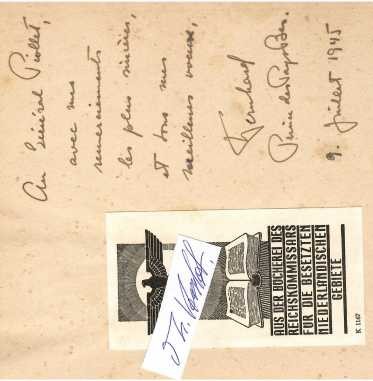 Au Général Piollet,
avec mes
remerciements
les plus sincères,
et tous mes
meilleurs voeux,
Bernhard
Prince des Pays Bas.
9. Juillet 1945
AUS DER BÜCHEREI DES
REICHSKOMMISSARS
FÜR DIE BESETZTEN
NIEDERLÄNDISCHEN
GEBIETE
K 1167